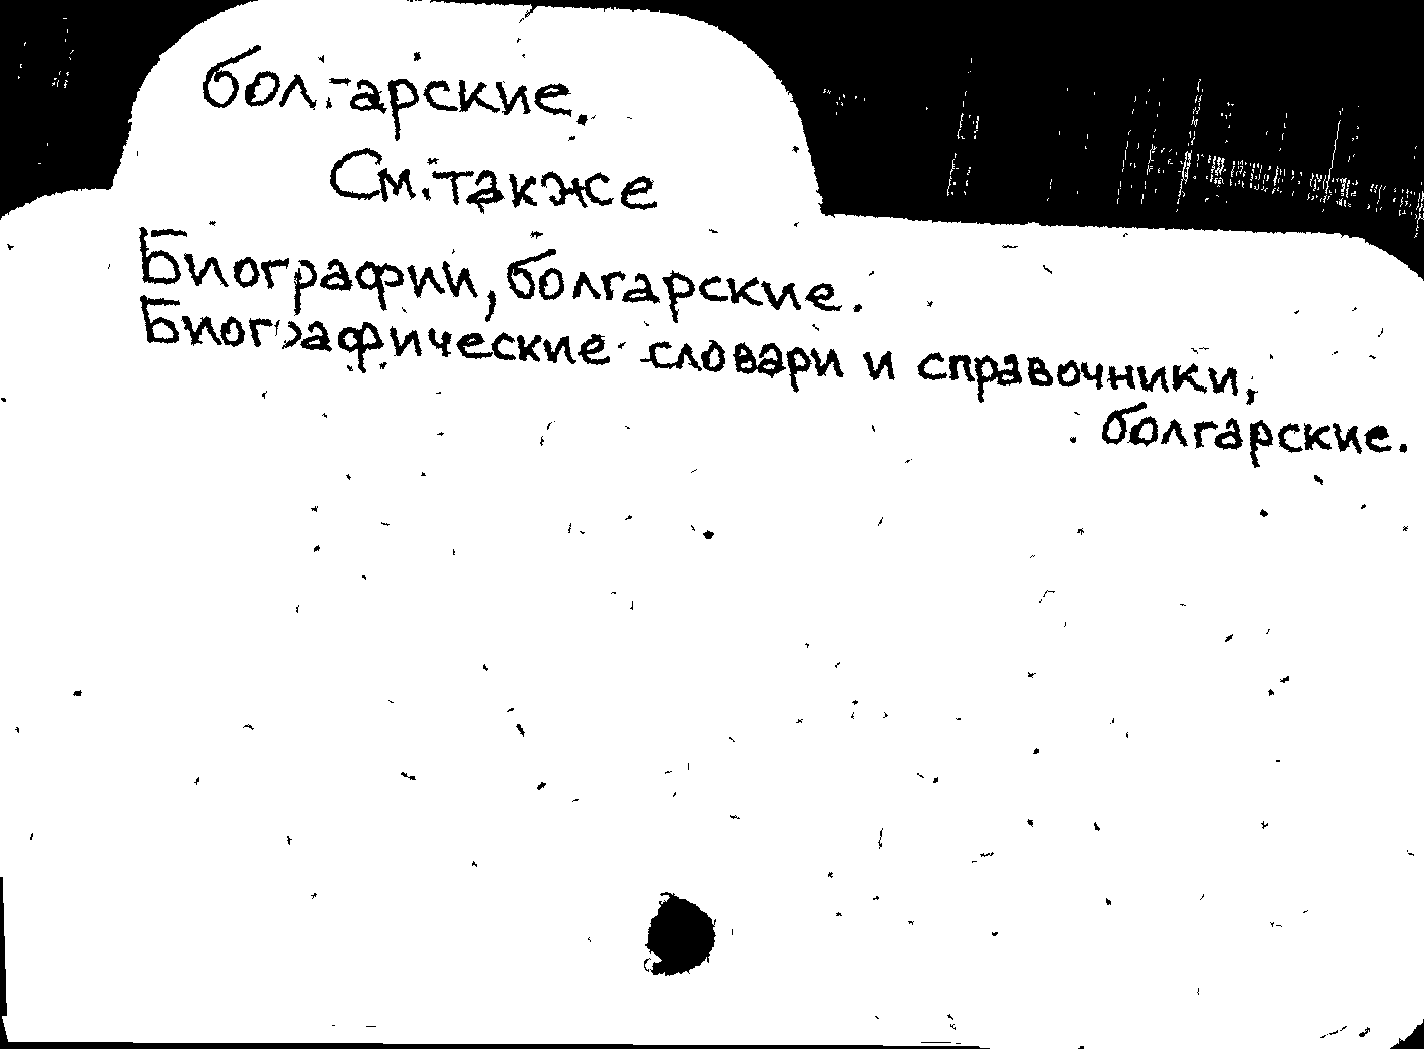 болгарские.
См. также
Биографии, болгарские.
Биографические словари и справочники,
болгарские.